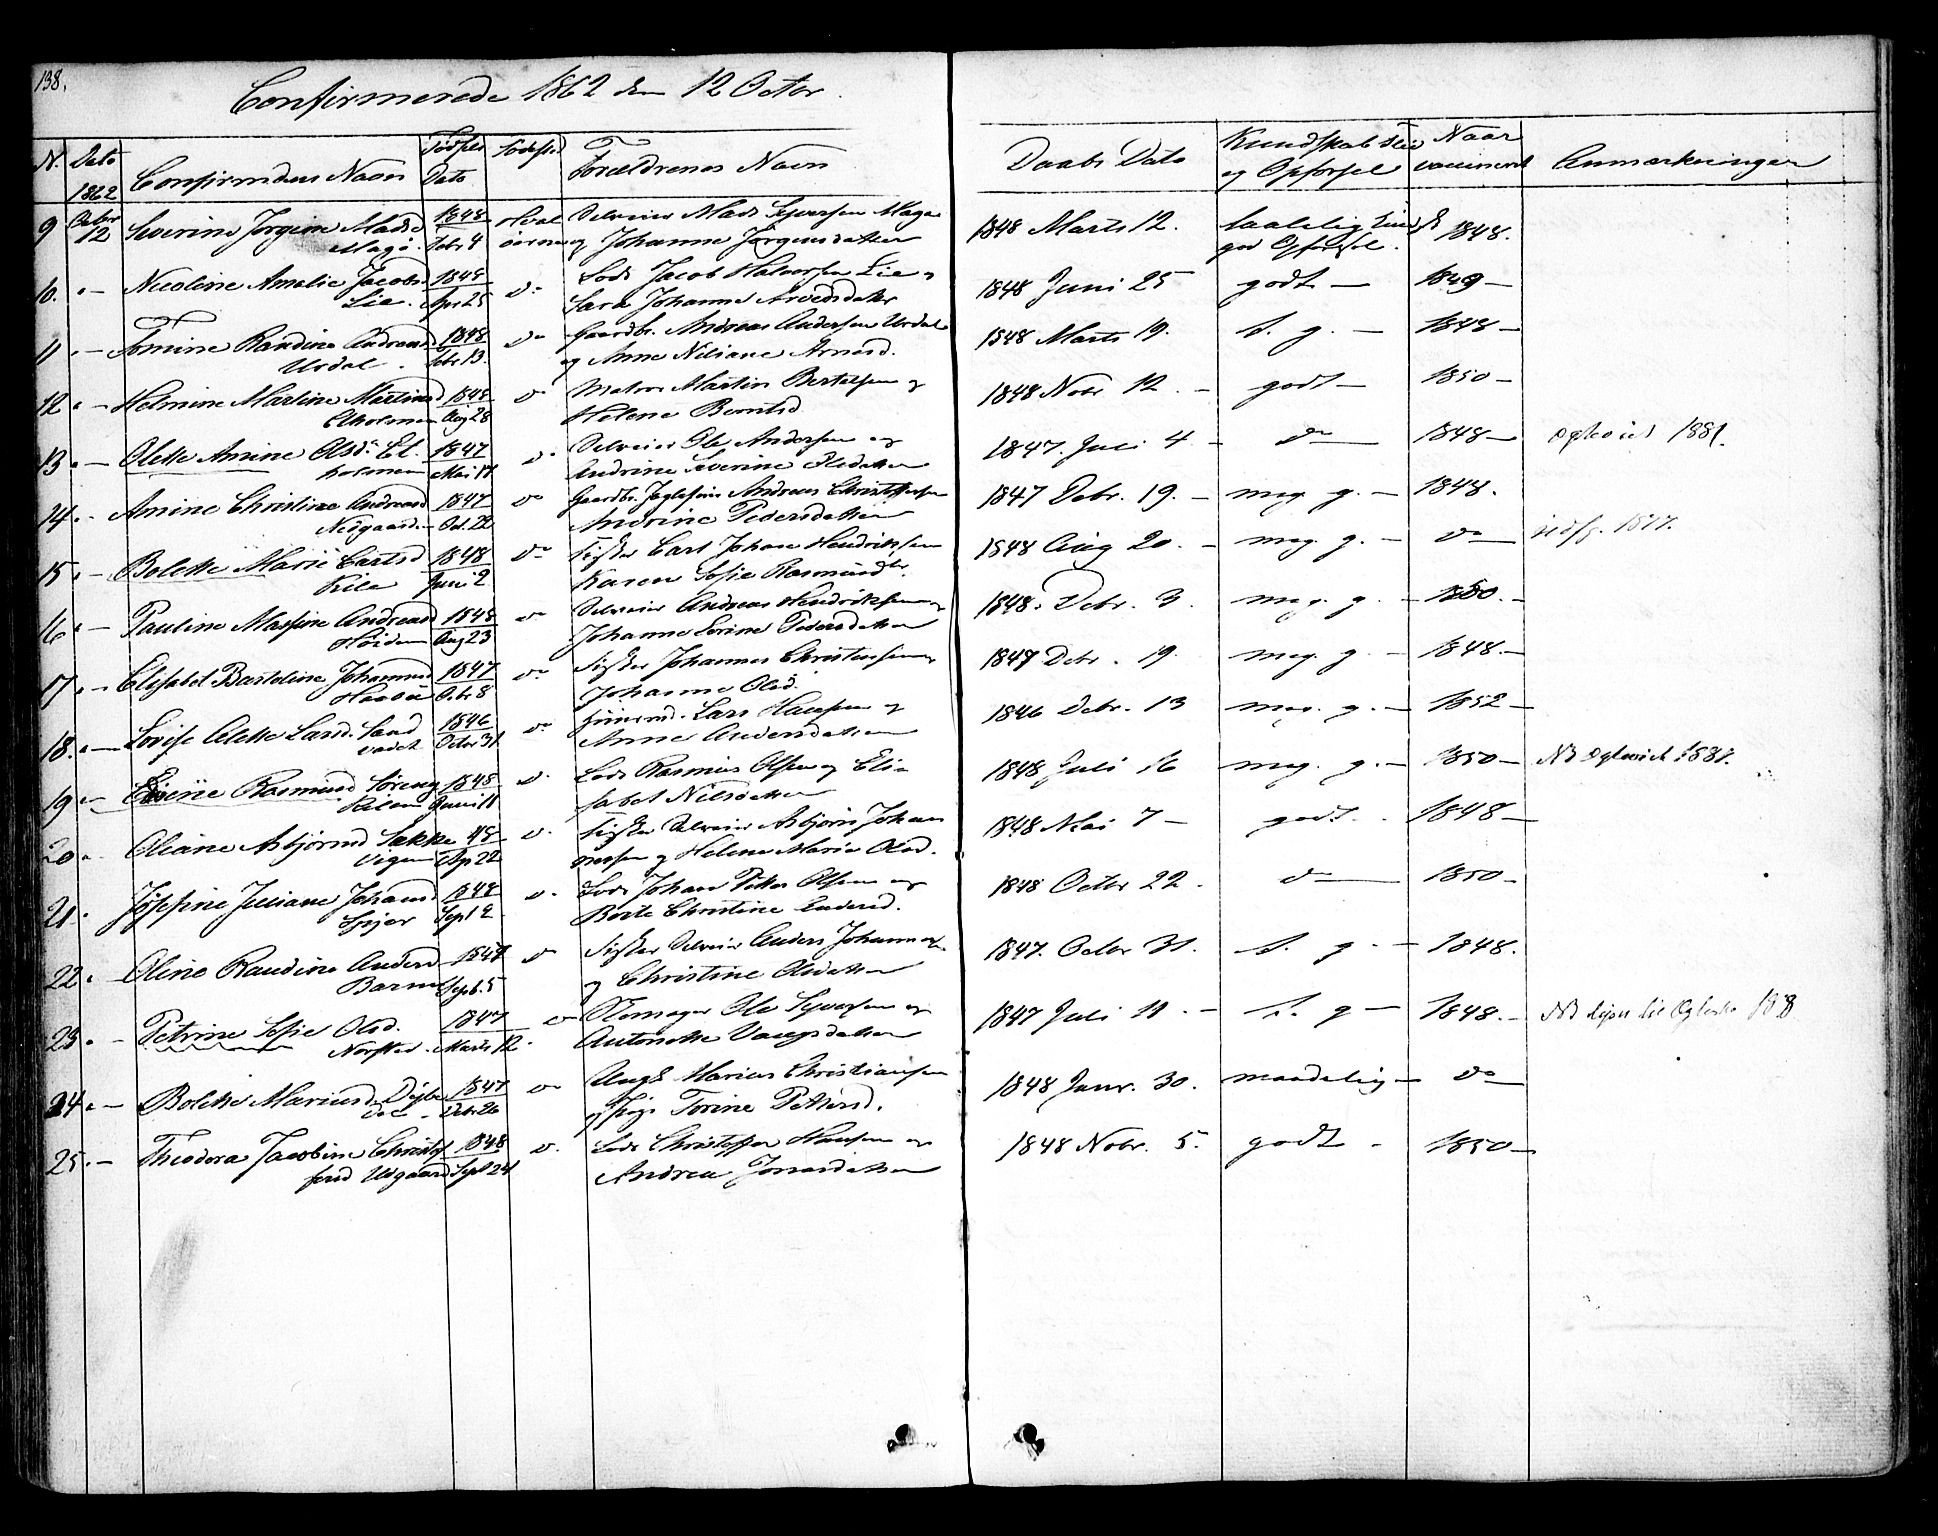 138.
Confirmerede 1862 den 12 Octbr.
N. Dato 1862 Confirmdens Navn Fødsels Dato Fødested Forældrenes Navn Daabs Dato Kundskabs og Opførsel Naar vaccineret Anmærkninger
9 Octbr 12 Severine Jørgine Madsd. 1848 Hval Selveier Mads Syversen Mage 1848 Marts 12. taalelig 1848.
Magø. Febr 4 øerne og Johanne Jørgensdatter god Opførsel.
10. " Nicoline Amalie Jacobsd. 1848 do Lods Jacob Halvorsen Lie 1848 Juni 25 godt 1849
Lie. Apr 25 Sara Johanne Arvedsdatter
11. " Tomine Randine Andreasd 1848 do Gaardbr. Andreas Andersen Urdal 1848 Marts 19. t. g. 1848
Urdal. Febr 13. og Anne Niliane Arnesd.
12 " Helmine Martine Martinsd 1848 do Matros Martin Bertelsen og 1848 Novbr 12. godt 1850
Ekholmen Aug 28 Helene Berntsd
13 " Olette Amine Olsd. Ek 1847 do Selveier Ole Andersen og 1847. Juli 4 do 1848 1881.
holmen Mai 17 Andrine Severine Olsdatter
14 " Amine Christine Andreasd 1847 do Gaardbr. Andreas Christophersen 1847 Debr. 19. meg. g. 1848.
Nedgaarden Oct. 22 Andrine Pedersdatter
15 " Bolette Marie Carlsd 1848 do Fisker Carl Johan Hendriksen 1848 Aug 20. meg. g. do 1877.
Kile Juni 2 Karen Sofie Rasmusdtr.
16 " Pauline Massine Andreasd 1848 do Selveier Andreas Hendriksen og 1848. Debr. 3. meg. g. 1850.
Høiden Aug 23 Johanne Lorine Pedersdatter
17 " Elisabet Bartoline Johannesd 1847 do Fisker Johannes Christensen og 1847 Debr. 19. meg. g. 1848.
Octbr 8 Johanne Olsd.
18. " Lovise Alette Larsd. Sand 1846 do Lars Hansen og 1846 Debr. 13 meg. g. 1852
Octbr 31 Anne Andersdatter
19 " Rasmusd Søreng 1848 do Lods Rasmus Olsen og Eli 1848 Juli 16 meg. g. 1850 NB
Kilen Juni 11 sabet Nilsdatter
20 " Oliane Asbjørnsd Sække 48 do Fisker Selveier Asbjørn Johan 1848 Mai 7 godt 1848
vigen Ap 22 nesen og Helene Marie Olsd.
21. Josefine Juliane Johansd 1848 do Lods Johan Petter Olsen og 1848 Octbr 22. do 1850
Spjær Sept 2 Berte Christine Endresd.
22 " Oline Randine Andersd 1847 do Fisker Selveier Anders Johannes 1847. Octbr 31. t. g. 1848.
Barm Sept. 5 og Christine Olsdatter
23 " Petrine Sofie Olsd. 1847 do Ole Syversen og 1847 Juli 11. t. g 1848. NB
Norsted. Marts 12. Antonette
24 " Bolette Mariusd. Dybe 1847 do Ungk Marius Christiansen 1848 Janr. 30. maadelig do
dal. Debr 26 og Pige Torine Pettersd.
25. " Theodora Jacobine Christof 1848 do Lods Christoffer Hansen og 1848 Novbr. 5. godt 1850
fersd Utgaard Sept 24 Andrea Jonasdatter